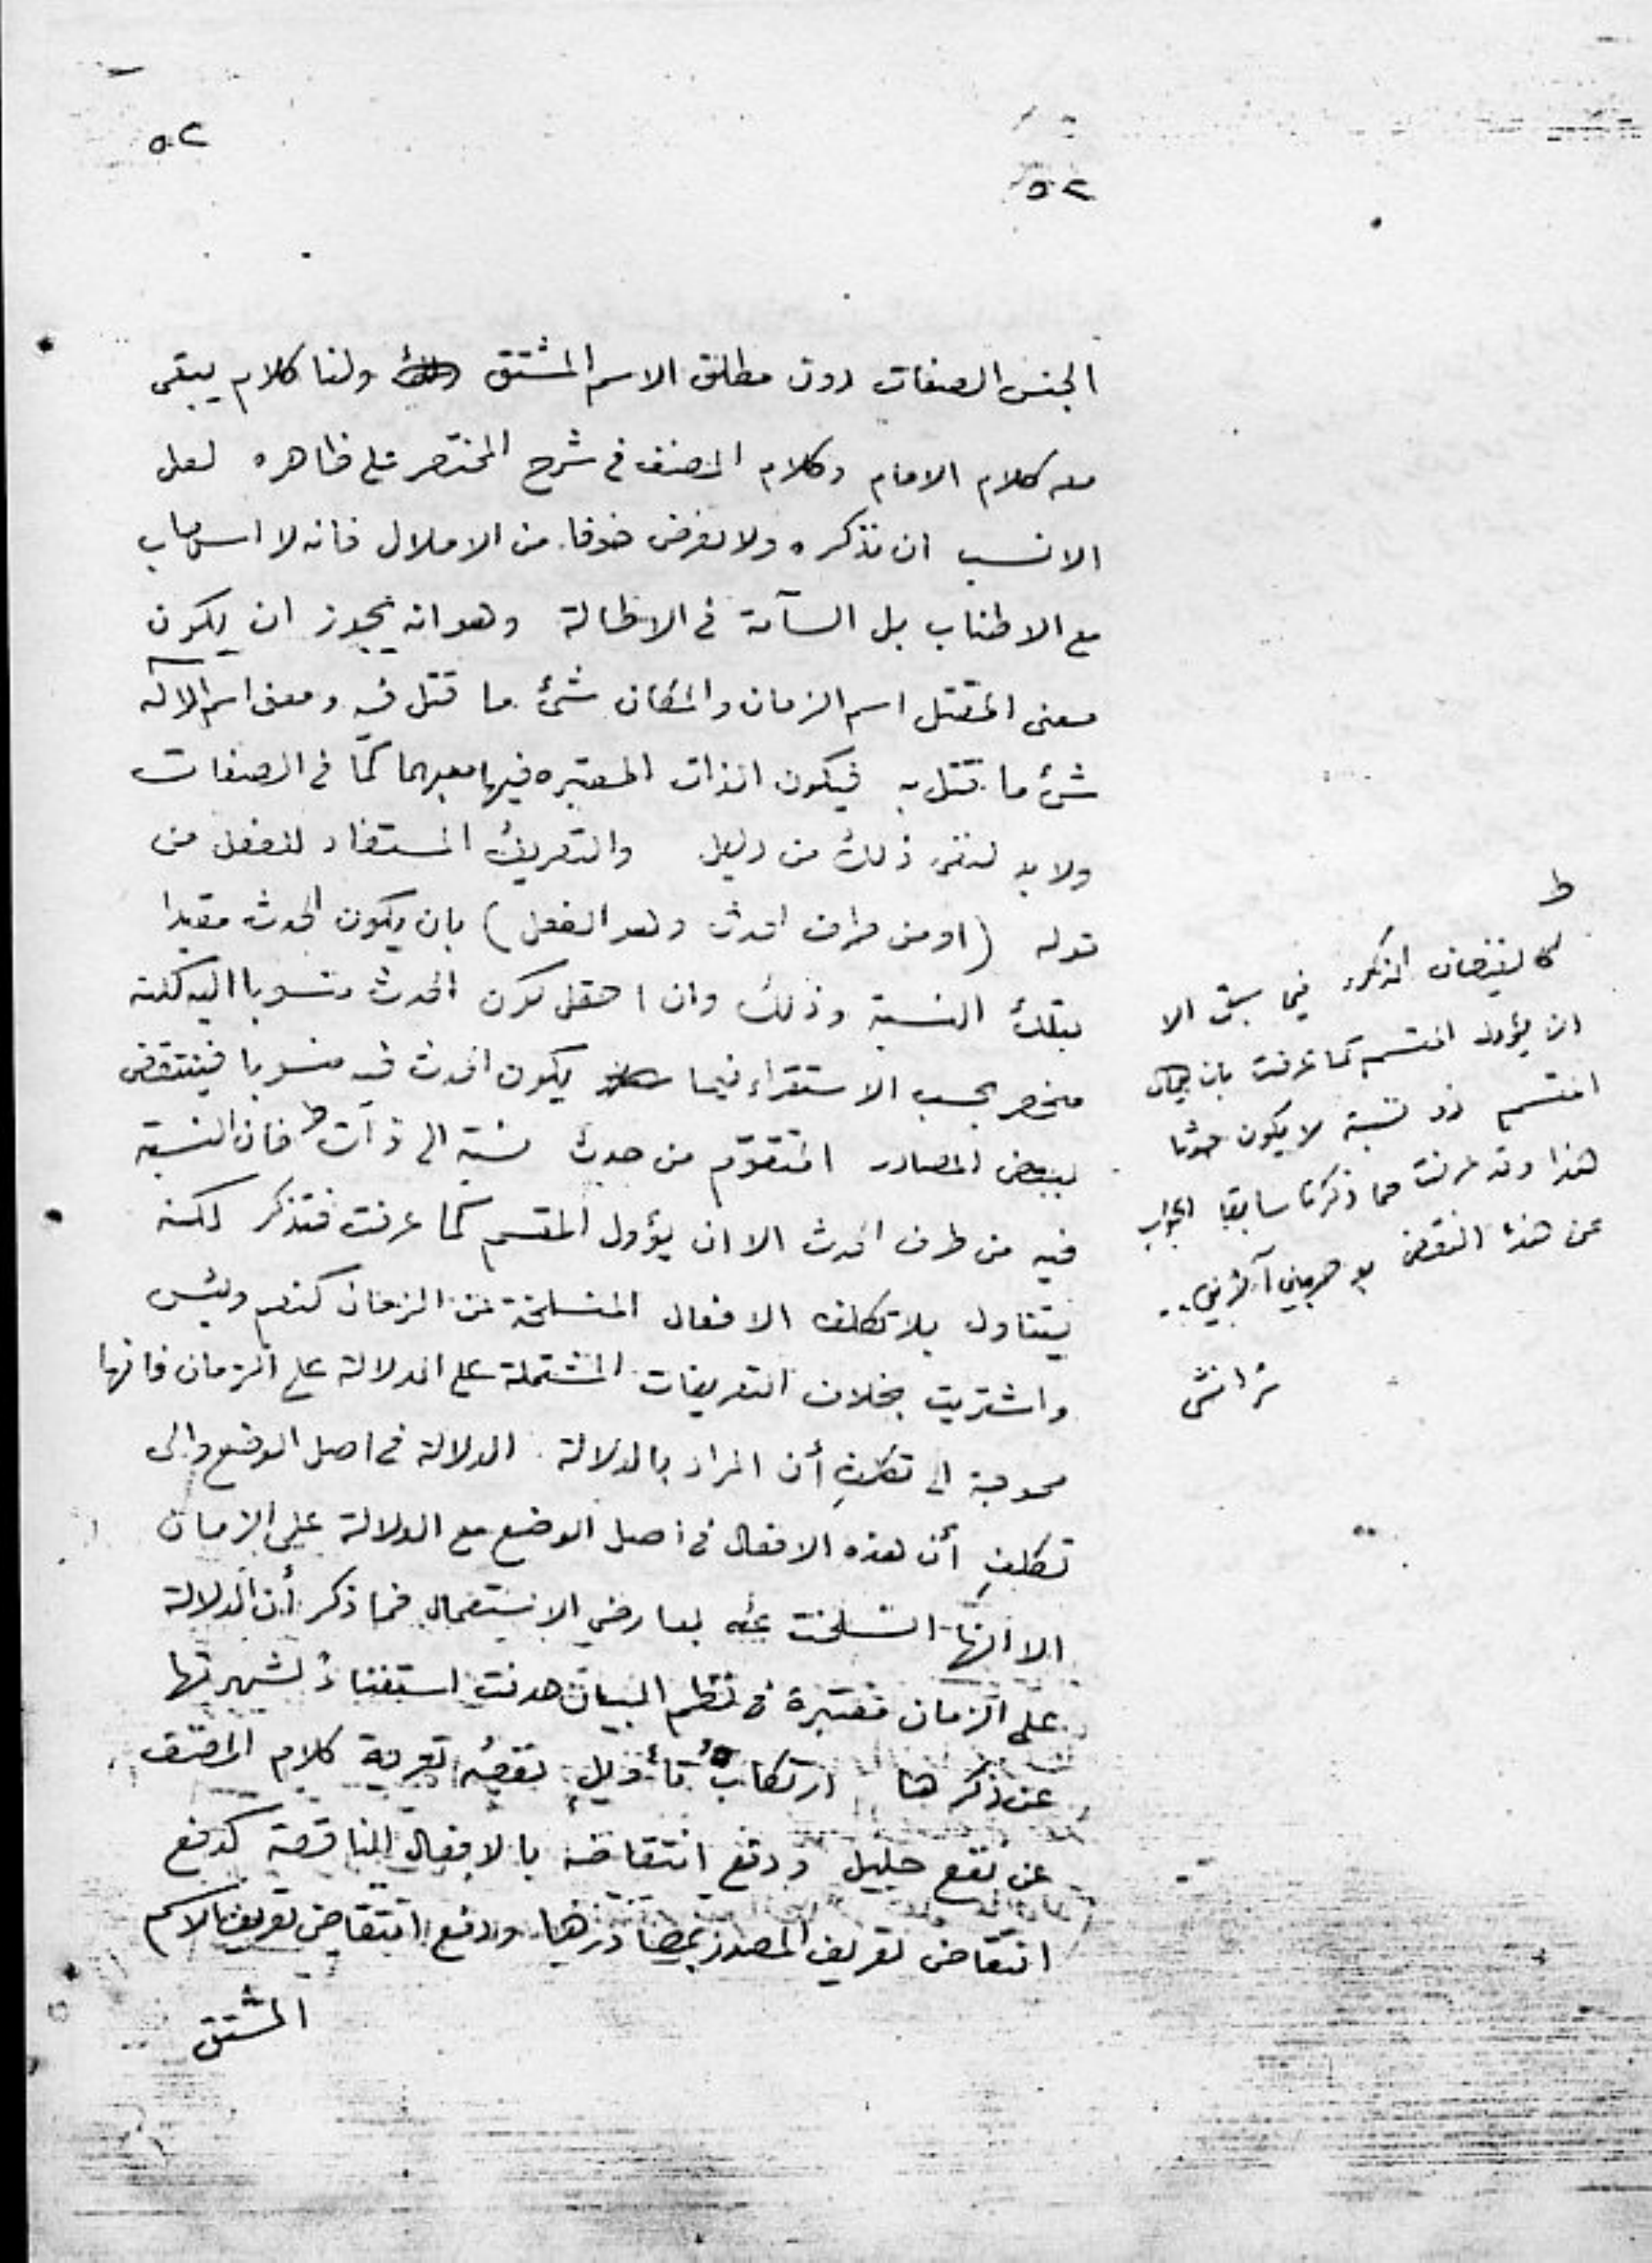 ٥٢
٥٢
الجنس الصفات دون مطلق الاسم المشتق ولنا كلام يبقى
معه كلام الامام وكلام المصنف في شرح المختصر على ظاهره لعل
الانسب ان نذكره ولا نعرض خوفا من الاملال فانه لا اسهاب
مع الاطناب بل السآمة في الاطالة وهو انه يجوز ان يكون
معنى المقتل اسم الزمان والمكان شئ ما قتل فيه ومعنى اسم الآلة
شئ ما قتل به فيكون الذات المعتبره فيها مبهما كما في الصفات
ولا بد لنفى ذلك من دليل والتعريف المستفاد للفعل من
قوله (او من طرف الحدث وهو الفعل) بان يكون الحدث مقيدا
بتلك النسبة وذلك وان احتمل كون الحدث منسوبا اليه لكنه
منحصر بحسب الاستقراء فيما يكون الحدث فيه منسوبا فينتقض
ببعض المصادر المتقوم من حدث نسبة الى ذات ط فان النسبة
فيه من طرف الحدث الا ان يؤول المقسم كما عرفت فتذكر لكنه
يتناول بلا تكلف الافعال المنسلخة عن الزمان كنعم وبئس
واشتريت بخلاف التعريفات المشتملة على الدلالة على الزمان فانها
محوجة الى تكلفِ أن المراد بالدلالة الدلالة في اصل الوضع والى
تكلفِ أن هذه الافعال في اصل الوضع مع الدلالة على الزمان
الا انّها انسلخت عنه بعارض الاستعمال فما ذكر أن الدلالة
على الزمان معتبرة في نظم البيان حذفت استغناءً لشهرتها
عن ذكرها ارتكابُ تأويلٍ نفعُه تعرية كلام المصنف
عن نفع جليل ودفع انتقاضه بالافعال الناقصة كدفع
انتقاض تعريف المصدر بمصادرها ودفع انتقاض تعريف الاسم
المشتق
ط
المذكور فيما سبق الا
ان يؤول المقسم كما عرفت بان
المقسم ذو نسبة لا يكون حدثا
هذا وقد عرفت مما ذكرنا سابقا الجواب
عن هذا النقض